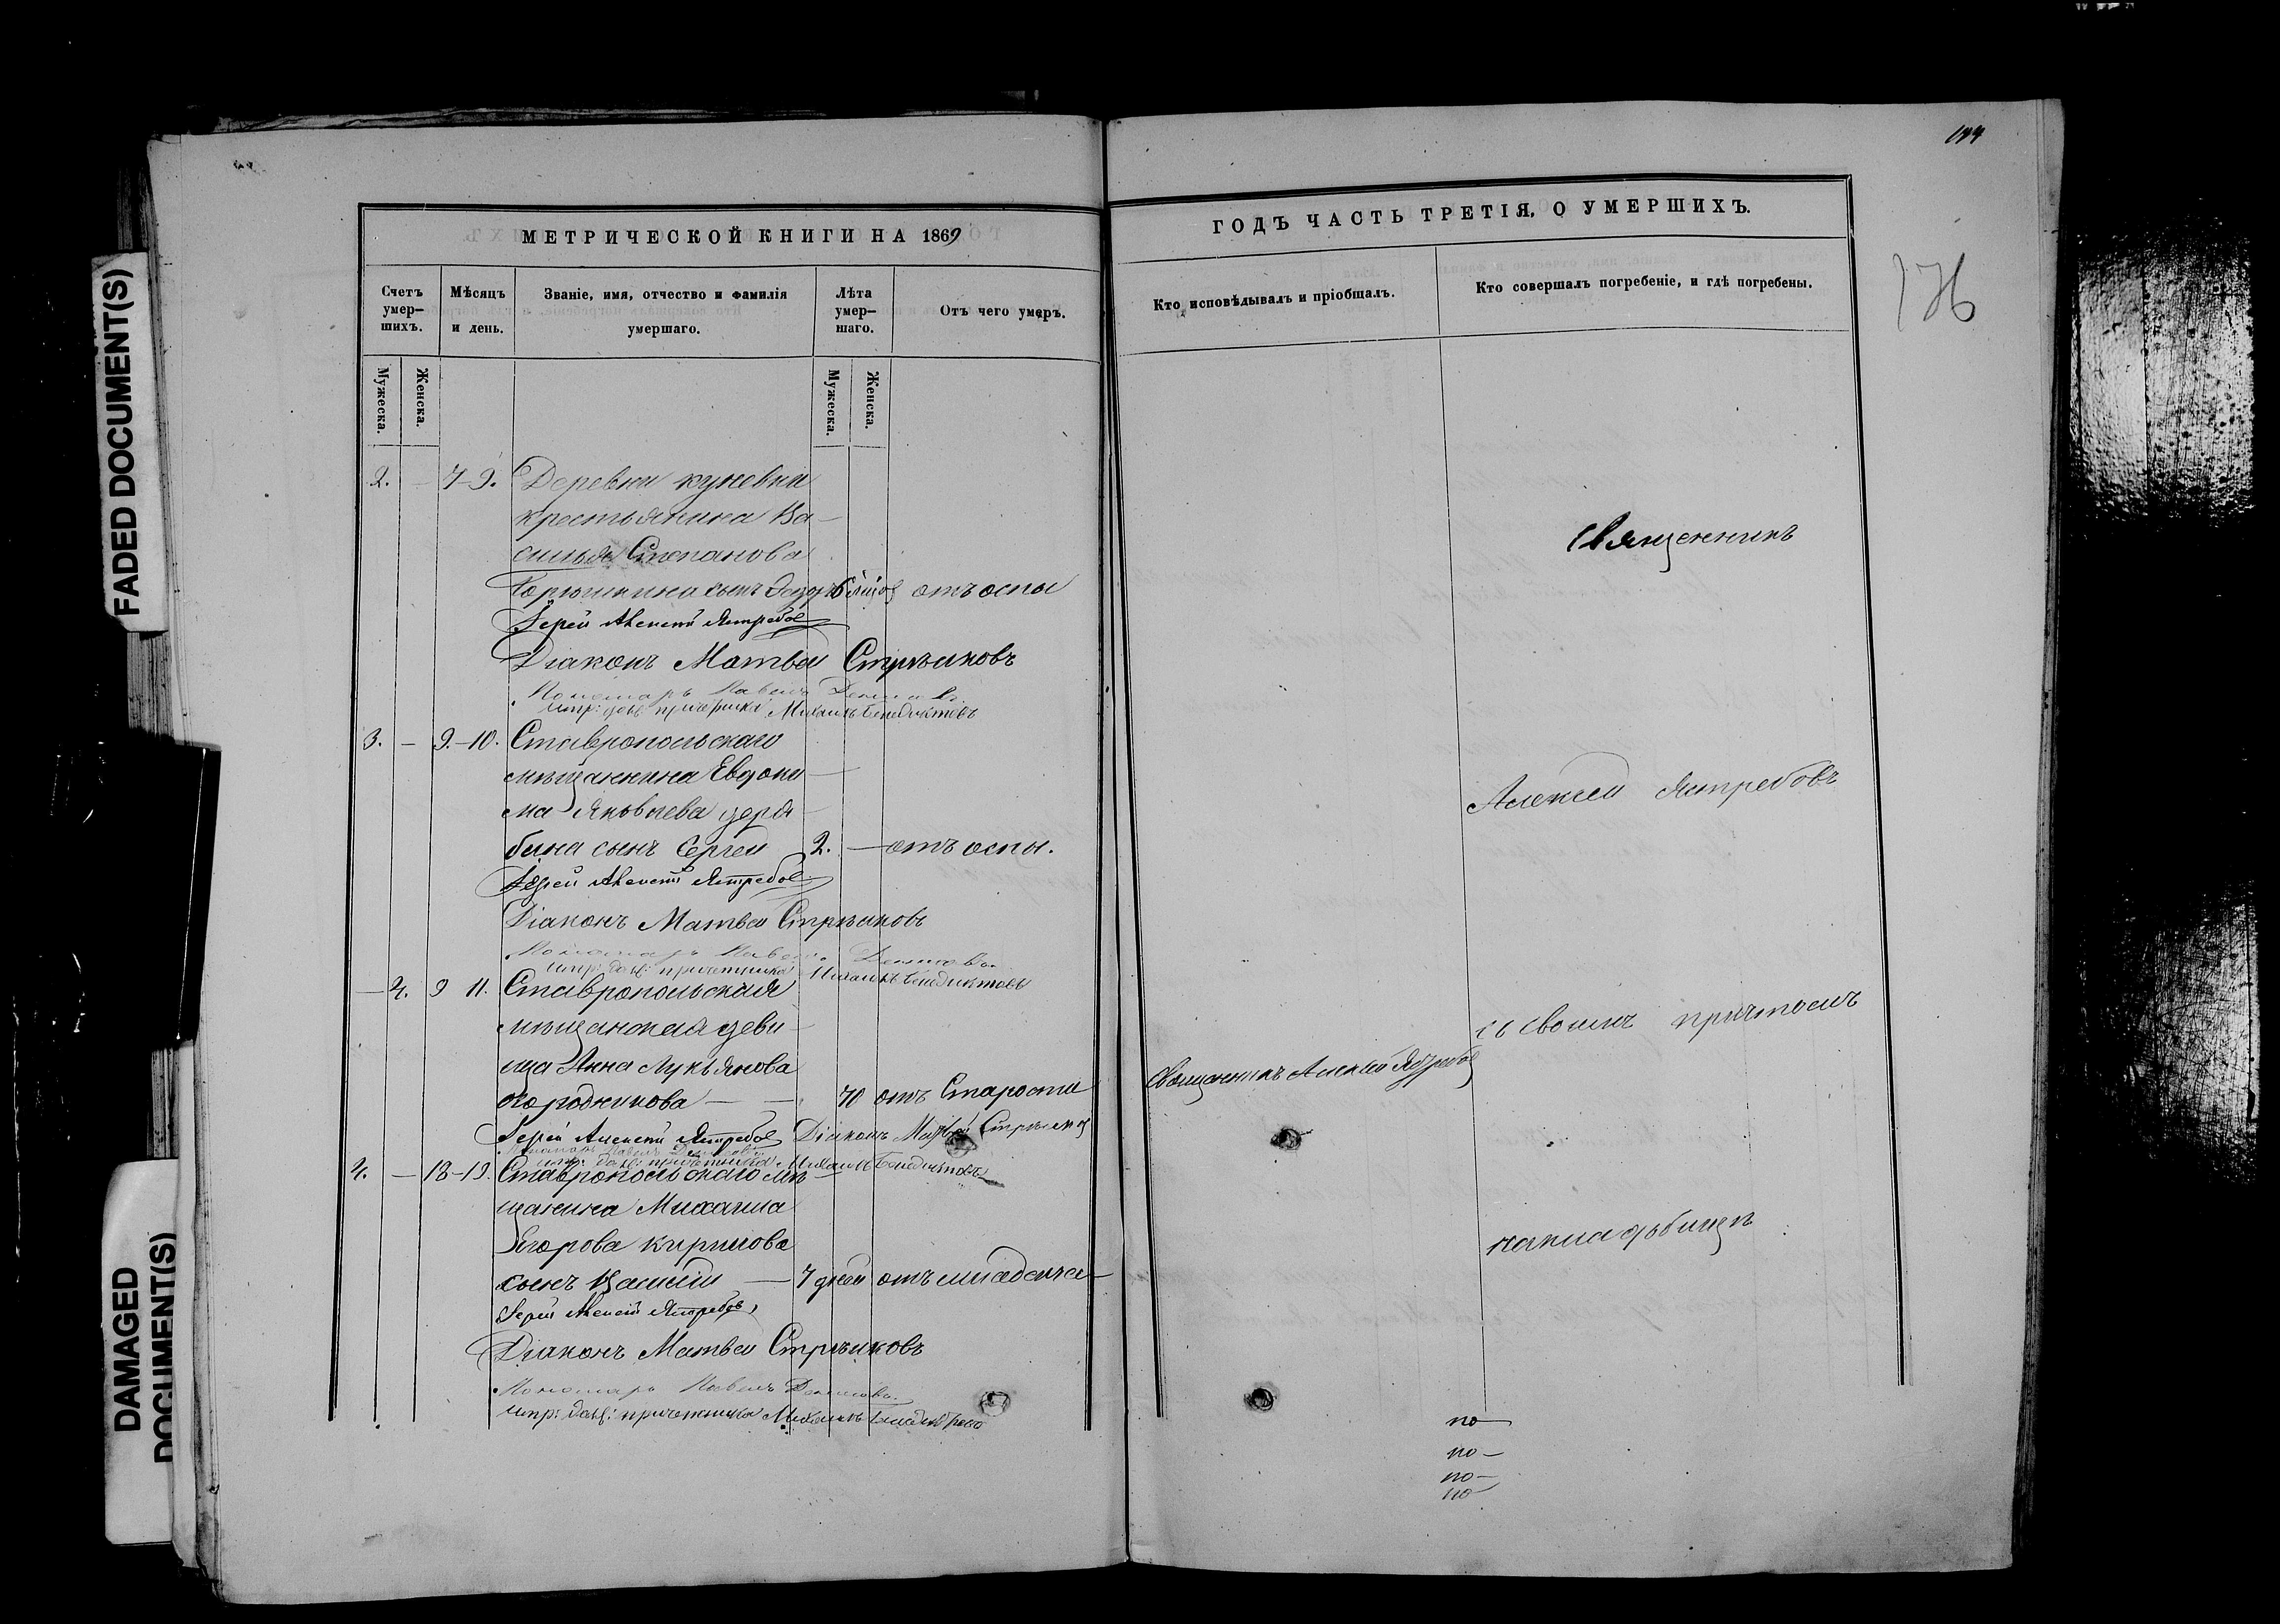 FADED DOCUMENT(S)
DAMAGED
DOCUMENT(S)
МЕТРИЧЕСКОЙ КНИГИ НА 1869
Счетъ умер-шихъ.
Мѣсяцъ и день.
Званіе, имя, отчество и фамилія умершаго.
Лѣта умер-шаго.
Отъ чего умеръ.
Мужеска.
Женска.
Мужеска.
Женска.
2. – 7-9. Деревни куневки
крестьянина Ва-
силья Степанова
сынъ отъ оспы
Іерей Алексей Ястребов
Діаконъ Матвей Стрѣлковъ
Пономарь Павелъ
испр: долж: причетника Михаилъ Бенедиктовъ
3. – 9.-10. Ставропольскаго
мѣщанина Евдоки-
ма Яковлева деря-
бина сынъ Сергей 2. – отъ оспы.
Іерей Алексей Ястребов
Діаконъ Матвей Стрѣлковъ
Пономарь Павелъ
испр: долж: причетника Михаилъ Бенедиктовъ
– 4. 9 11. Ставропольская
мѣщанская деви-
ца Анна Лукьянова
огородникова – – 70 отъ Старости
Іерей Алексей Ястребов Діаконъ Матвей Стрѣлков
испр: долж: причетника Михаилъ Бенедиктовъ
4. – 18-19. Ставропольскаго мѣ
щанина Михаила
Егорова кирилова
сынъ Василій – 7 дней отъ младенче-
Іерей Алексей Ястребовъ
Діаконъ Матвей Стрѣлковъ
Пономарь Павелъ
испр: долж: причетника Михаилъ
ГОДЪ ЧАСТЬ ТРЕТІЯ, О УМЕРШИХЪ.
Кто исповѣдывалъ и пріобщалъ.
Кто совершалъ погребеніе, и гдѣ погребены.
176
Священникъ
Алексей Ястребовъ
съ своимъ причтомъ
Священникъ Алексей Ястребов
на кладбищѣ
по
по –
по –
по